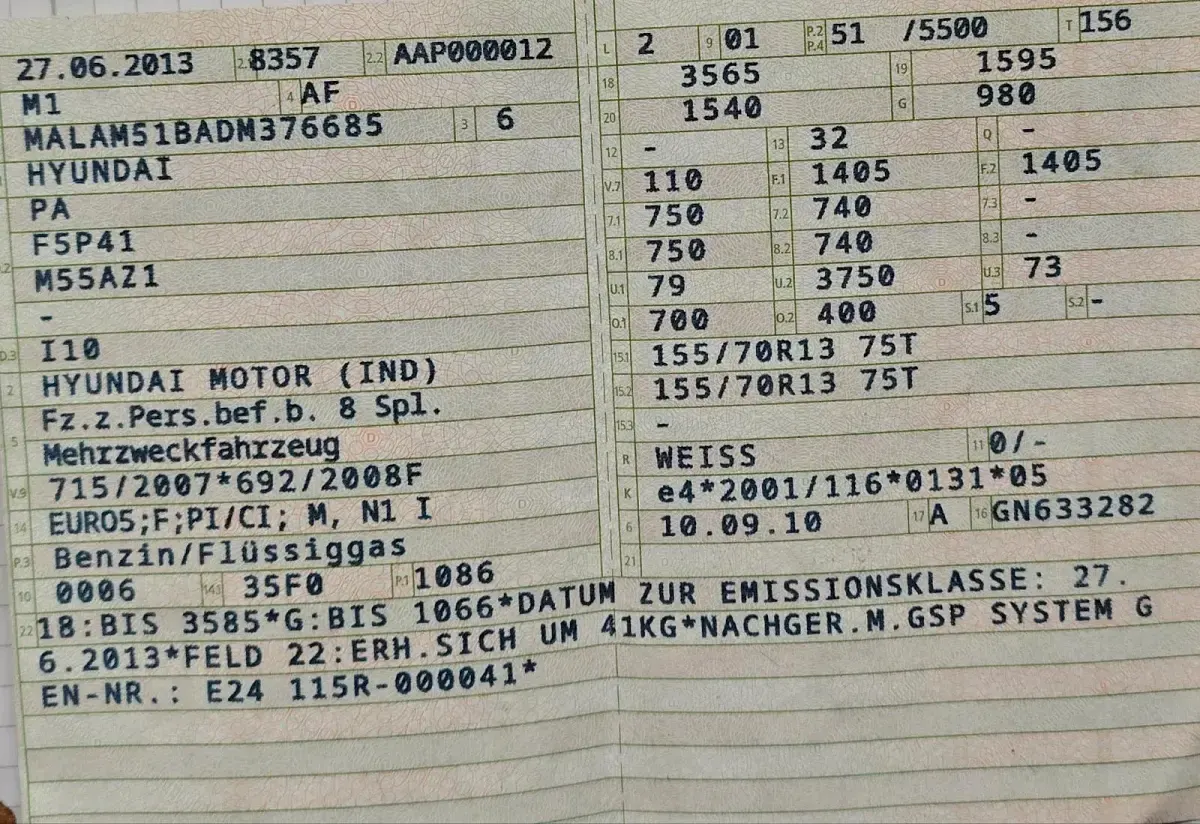 27.06.2013 2.1 8357 2.2 AAP000012
M1 4 AF
MALAM51BADM376685 3 6
HYUNDAI
PA
F5P41
M55AZ1
-
D.3 I10
2 HYUNDAI MOTOR (IND)
Fz.z.Pers.bef.b. 8 Spl.
5 Mehrzweckfahrzeug
V.9 715/2007*692/2008F
14 EURO5;F;PI/CI; M, N1 I
P.3 Benzin/Flüssiggas
10 0006 14.1 35F0 P.1 1086
L 2 9 01 P.2 P.4 51 /5500 T 156
18 3565 19 1595
20 1540 G 980
12 - 13 32 Q -
V.7 110 F.1 1405 F.2 1405
7.1 750 7.2 740 7.3 -
8.1 750 8.2 740 8.3 -
U.1 79 U.2 3750 U.3 73
O.1 700 O.2 400 S.1 5 S.2 -
15.1 155/70R13 75T
15.2 155/70R13 75T
15.3 -
R WEISS 11 0/-
K e4*2001/116*0131*05
6 10.09.10 17 A 16 GN633282
21
22 18:BIS 3585*G:BIS 1066*DATUM ZUR EMISSIONSKLASSE: 27.
6.2013*FELD 22:ERH.SICH UM 41KG*NACHGER.M.GSP SYSTEM G
EN-NR.: E24 115R-000041*